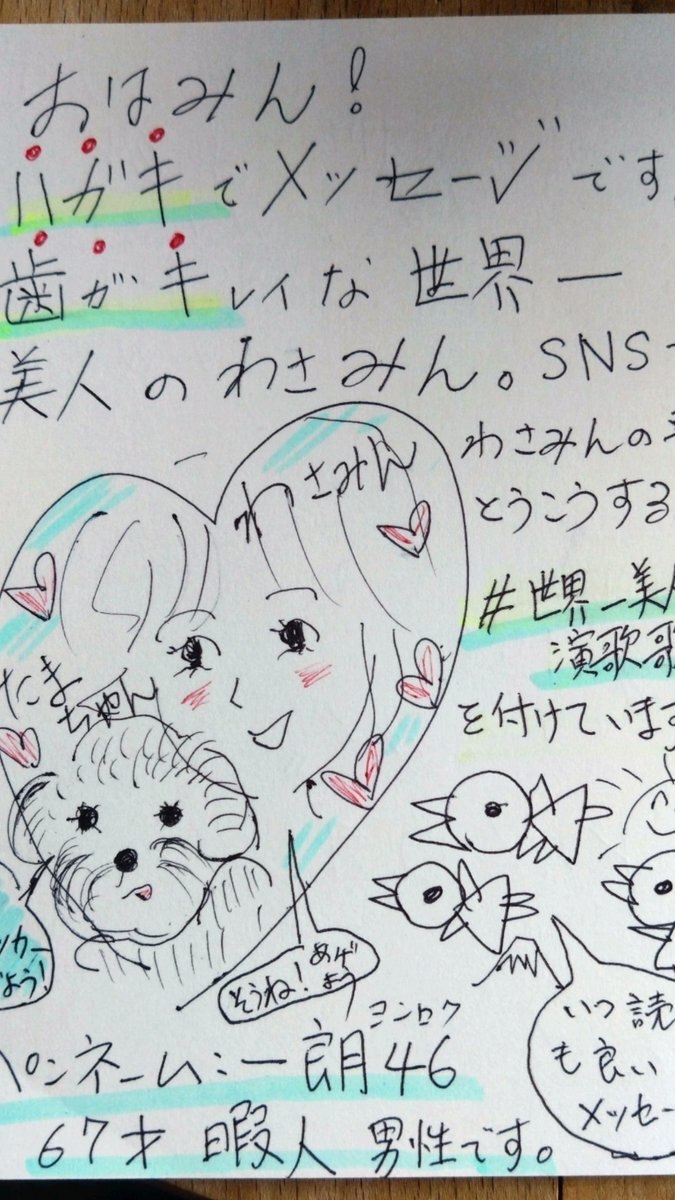 おはみん!
ハガキでメッセージです。
歯がキレイな世界一
美人のわさみん。SNSで
わさみんの
とうこうする
わさみん
#世界一美人
演歌歌
を付けています
たま
ちゃん
ッカー
よう!
そうね!あげ
よう
いつ読
も良い
メッセー
ヨンロク
ペンネーム:一朗46
67才 暇人 男性です。